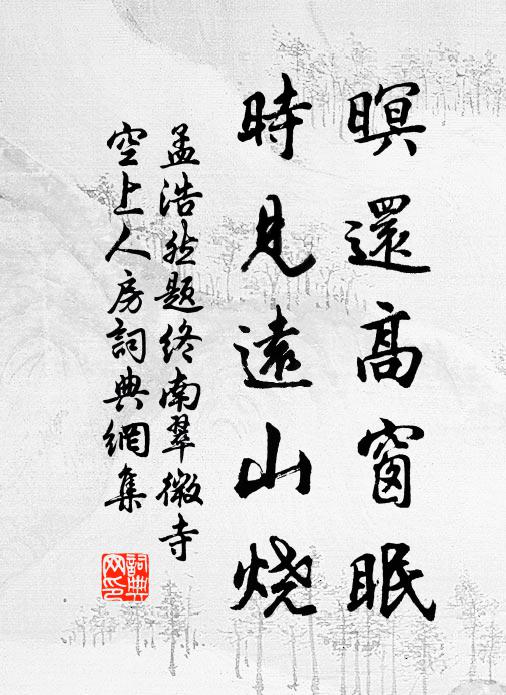 暝還高窗眠
時見遠山燒
孟浩然題終南翠微寺
空上人房詞典網集
詞典
网印